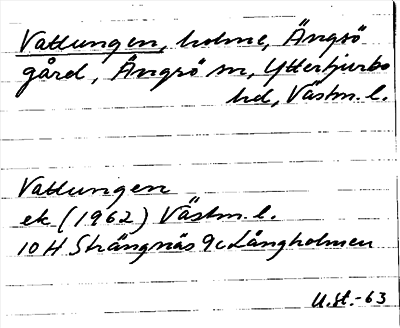 Vattungen, holme, Ängsö
gård, Ängsö sn, Yttertjurbo
hd, Västm. l.
Vattungen
ek (1962) Västm. l.
10 H Strängnäs 9c Långholmen
U.St.-63